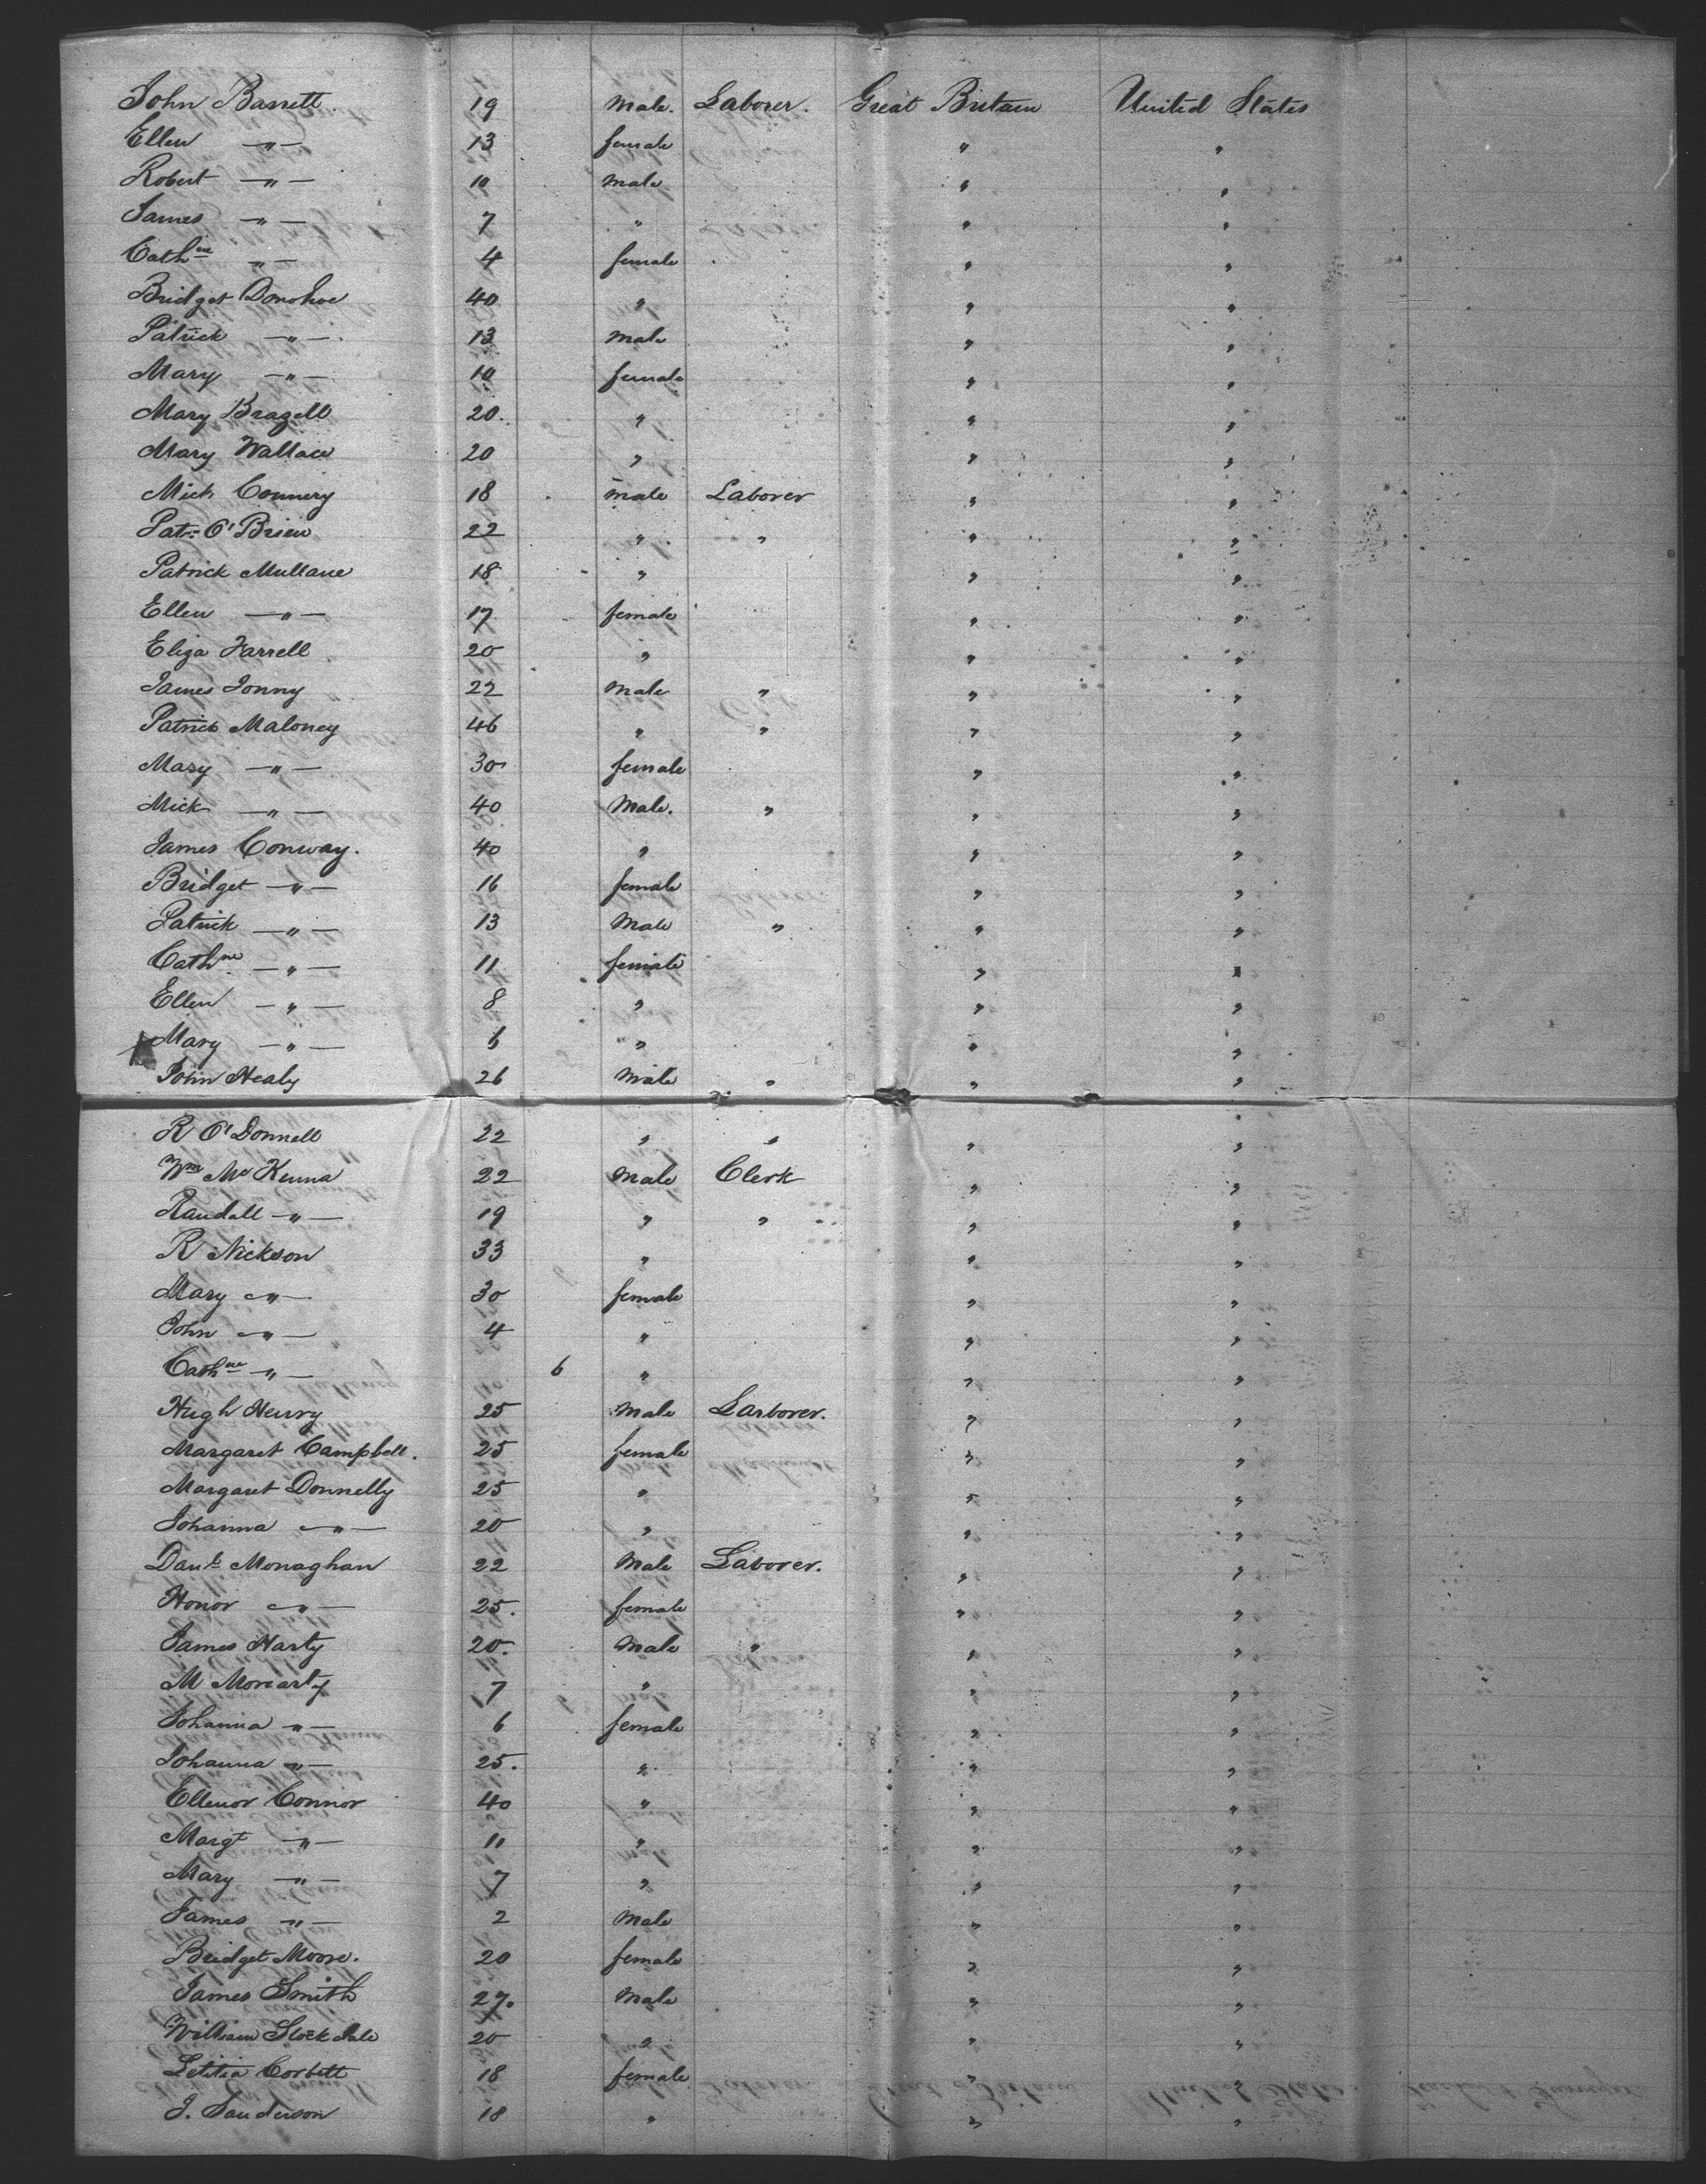 John Barrett 19 Male. Laborer. Great Britain United States
Ellen —„— 13 female „ „
Robert —„— 10 Male „ „
James —„— 7 „ „ „
Cathne —„— 4 female „ „
Bridget Donohoe 40 „ „ „
Patrick —„— 13 Male „ „
Mary —„— 10 female „ „
Mary Bragell 20. „ „ „
Mary Wallace 20 „ „ „
Mich Connery 18 Male Laborer „ „
Pat: O'Brien 22 „ „ „ „
Patrick Mullane 18 „ „ „
Ellen —„— 17 female „ „
Eliza Farrell 20 „ „ „
James Jonny 22 Male „ „ „
Patrick Maloney 46 „ „ „ „
Mary —„— 30 female „ „
Mick —„— 40 Male. „ „ „
James Conway. 40 „ „ „
Bridget —„— 16 female „ „
Patrick —„— 13 Male „ „ „
Cathne —„— 11 female „ „
Ellen —„— 8 „ „ „
Mary —„— 6 „ „ „
John Healy 26 Male „ „ „
R O'Donnell 22 „ „ „ „
Wm McKenna 22 Male Clerk „ „
Randall —„— 19 „ „ „ „
R Nickson 33 „ „ „
Mary —„— 30 female „ „
John —„— 4 „ „ „
Cathne —„— 6 „ „ „
Hugh Henry 25 Male Larborer. „ „
Margaret Campbell. 25 female „ „
Margaret Donnelly 25 „ „ „
Johanna —„— 20 „ „ „
Danl Monaghan 22 Male Laborer. „ „
Honor —„— 25. female „ „
James Harty 20. Male „ „ „
M Moriarty 7 „ „ „
Johanna —„— 6 female „ „
Johanna —„— 25. „ „ „
Ellenor Connor 40 „ „ „
Margt —„— 11 „ „ „
Mary —„— 7 „ „ „
James —„— 2 Male „ „
Bridget Moore. 20 female „ „
James Smith 27. Male „ „
William Stockdale 20 „ „ „
Letitia Corbett 18 female „ „
J. Sanderson 18 „ „ „